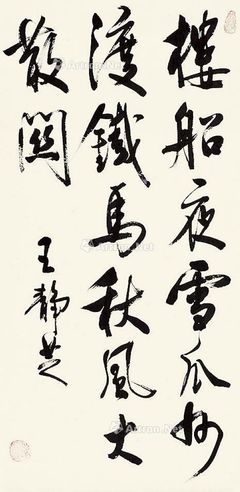 樓船夜雪瓜州
渡鐵馬秋風大
散關
王靜芝